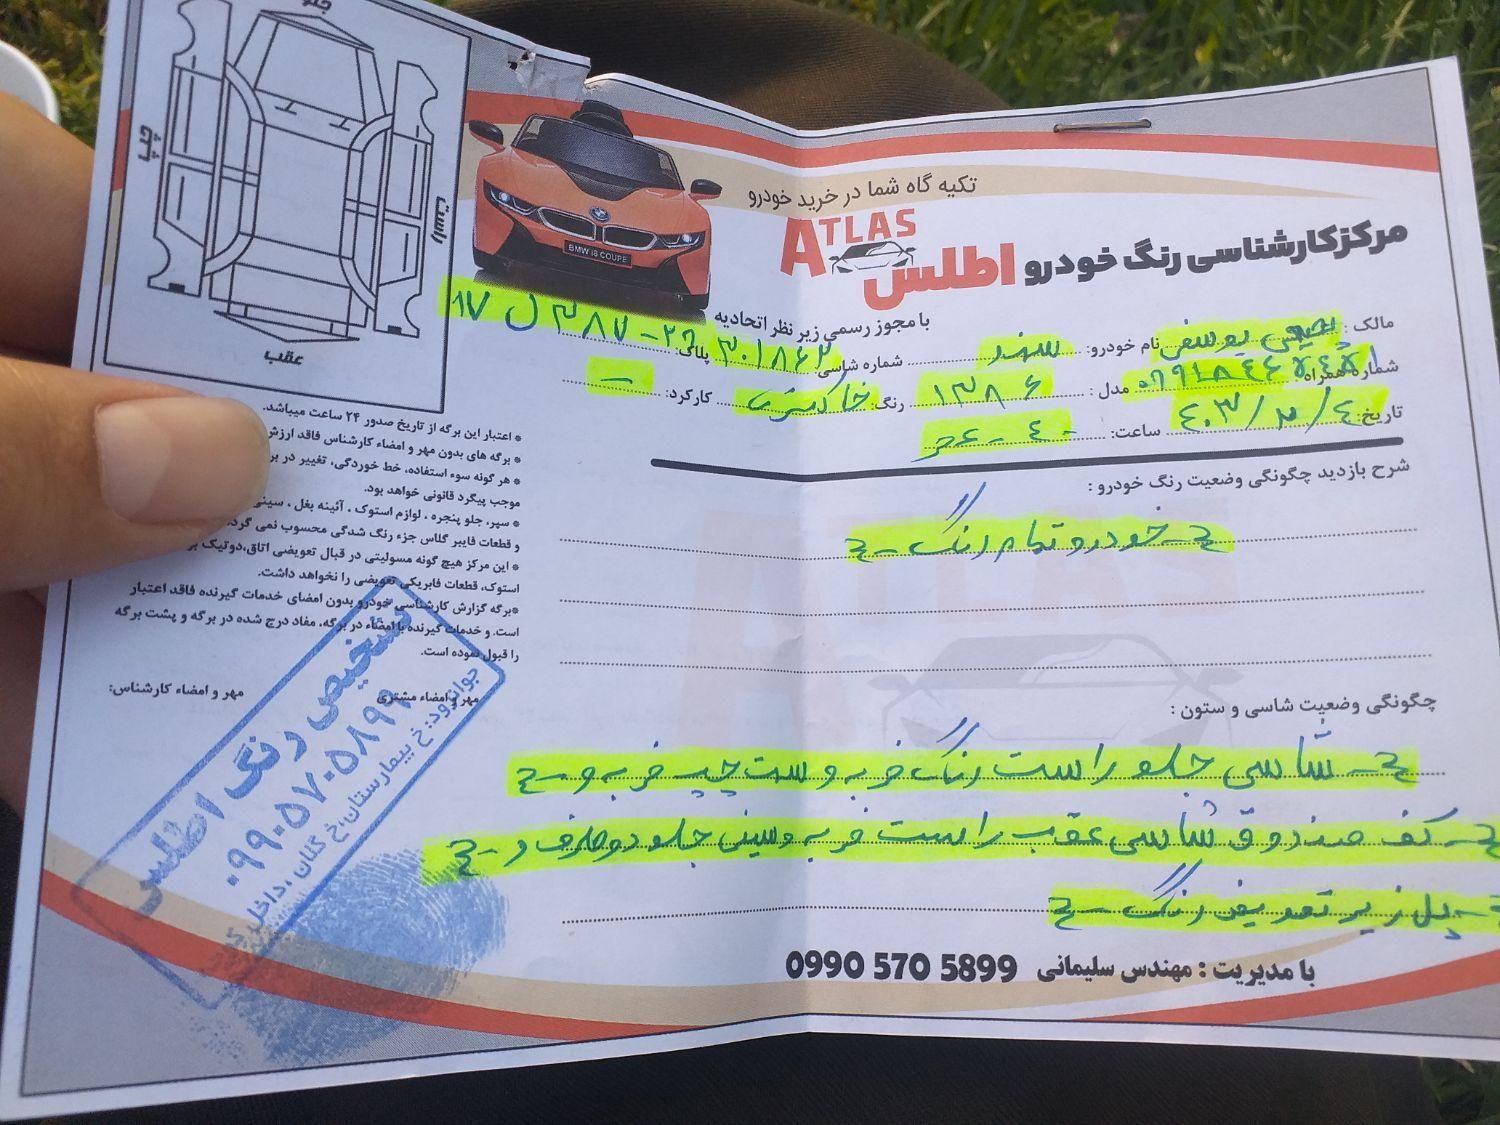 تکیه گاه شما در خرید خودرو
ATLAS
مرکز کارشناسی رنگ خودرو اطلس
با مجوز رسمی زیر نظر اتحادیه
BMW i8 COUPE
مالک: یوسفی نام خودرو: سمند شماره شاسی: ۳۰۱۸۶۲ پلاک:
شماره همراه: مدل: ۱۳۸۶ رنگ: خاکستری کارکرد: –
تاریخ: ۴۰۳/۳/۴ ساعت:
شرح بازدید چگونگی وضعیت رنگ خودرو:
خودرو تمام رنگ
چگونگی وضعیت شاسی و ستون:
شاسی جلو راست رنگ ضربه وست چپ ضربه و
کف صندوق شاسی عقب راست ضربه وسینی جلو دوطرف و
پل زیر تعویض رنگ
با مدیریت: مهندس سلیمانی 0990 570 5899
جلو
چپ
راست
عقب
* اعتبار این برگه از تاریخ صدور ۲۴ ساعت میباشد.
* برگه های بدون مهر و امضاء کارشناس فاقد ارزش
* هر گونه سوء استفاده، خط خوردگی، تغییر در
موجب پیگرد قانونی خواهد بود.
* سپر، جلو پنجره، لوازم استوک، آئینه بغل، سینی
و قطعات فایبر گلاس جزء رنگ شدگی محسوب نمی
* این مرکز هیچ گونه مسولیتی در قبال تعویضی اتاق،دوتیک
استوک، قطعات فابریکی تعویضی را نخواهد داشت.
*برگه گزارش کارشناسی خودرو بدون امضای خدمات گیرنده فاقد اعتبار
است. و خدمات گیرنده با امضاء در برگه، مفاد درج شده در برگه و پشت برگه
را قبول نموده است.
مهر و امضاء مشتری مهر و امضاء کارشناس:
تشخیص رنگ اطلس
۰۹۹۰۵۷۰۵۸۹۹
جوانرود: خ بیمارستان، خ گلان، داخل